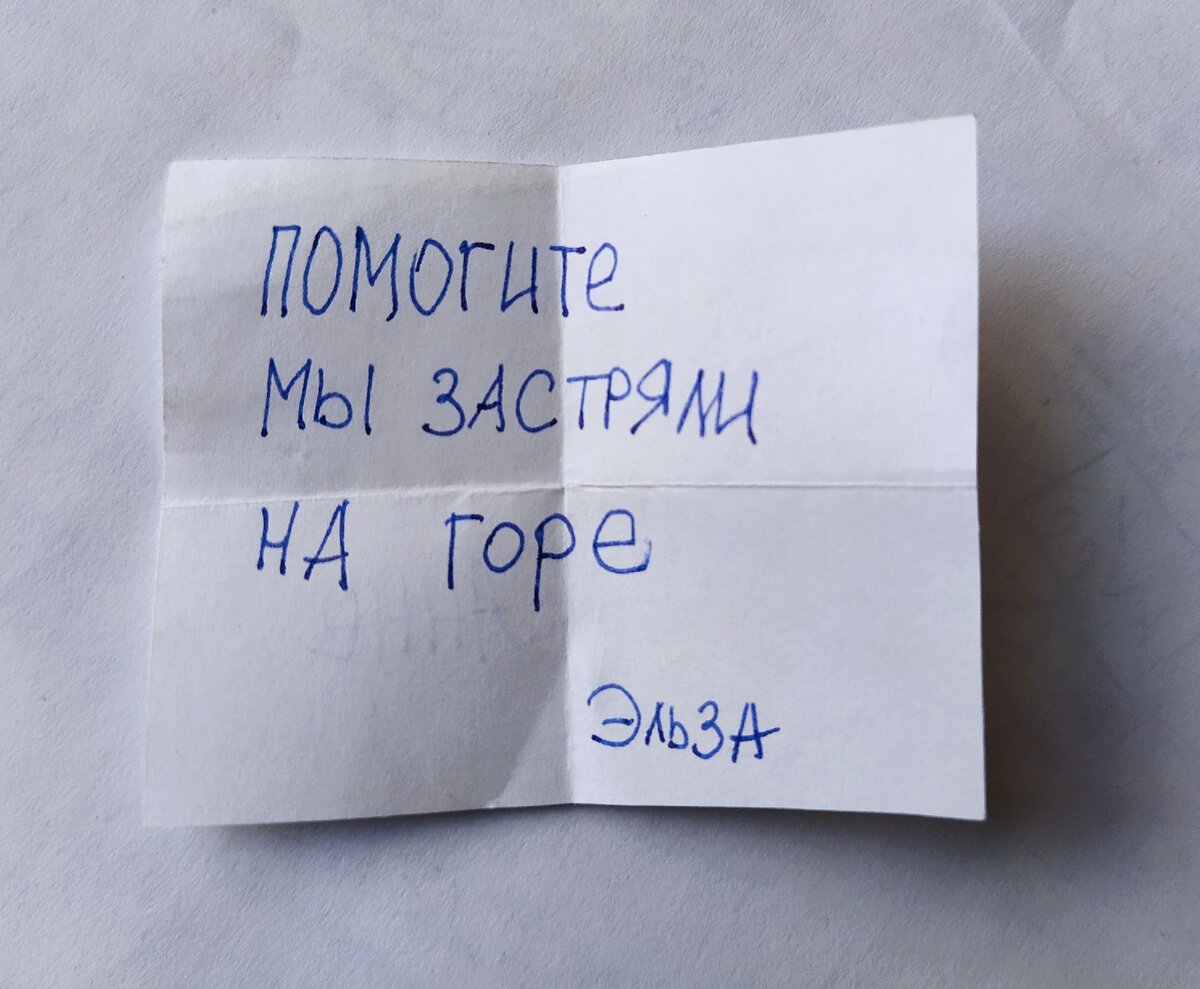 ПОМОГИТЕ
МЫ ЗАСТРЯЛИ
НА ГОРЕ
ЭЛЬЗА